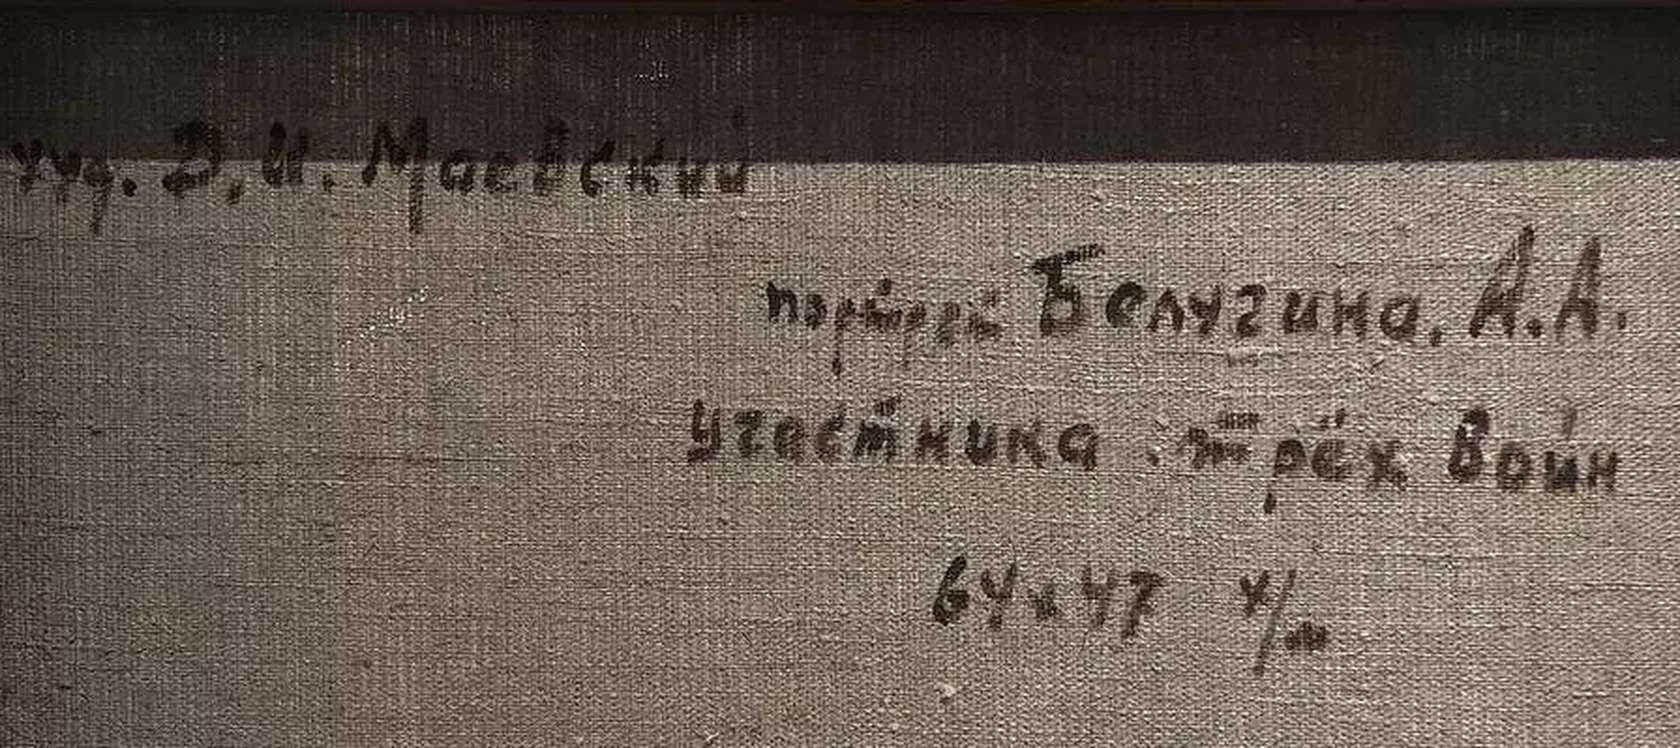 худ. Д.И. Маевский
портрет Белугина. А.А.
участника трёх войн
64х47 х/м